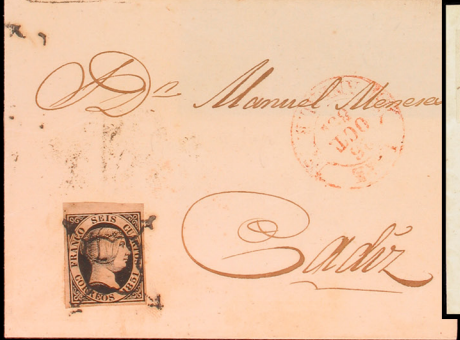 Dn. Manuel Menesa
OCT.
Cadiz
FRANCO SEIS CUARTOS
CORREOS 1851